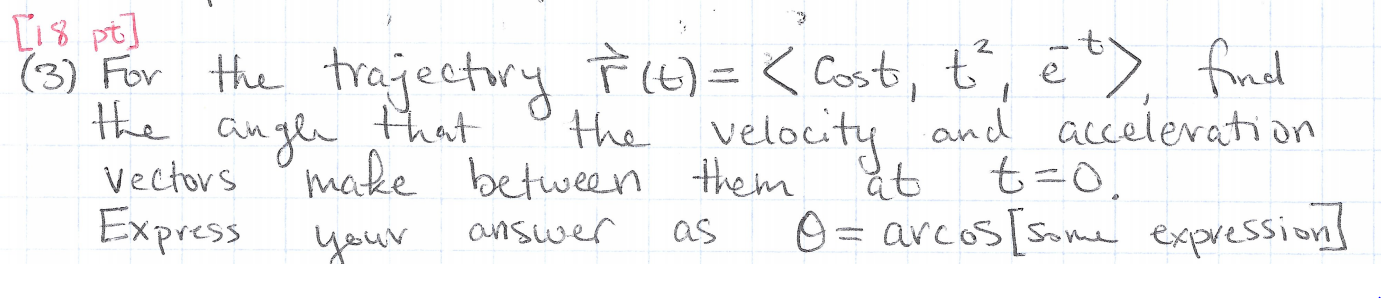 [18 pt]
(3) For the trajectory r⃗(t) = < Cost, t², e^-t >, find
the angle that the velocity and acceleration
vectors make between them at t=0.
Express your answer as θ = arcos[some expression]